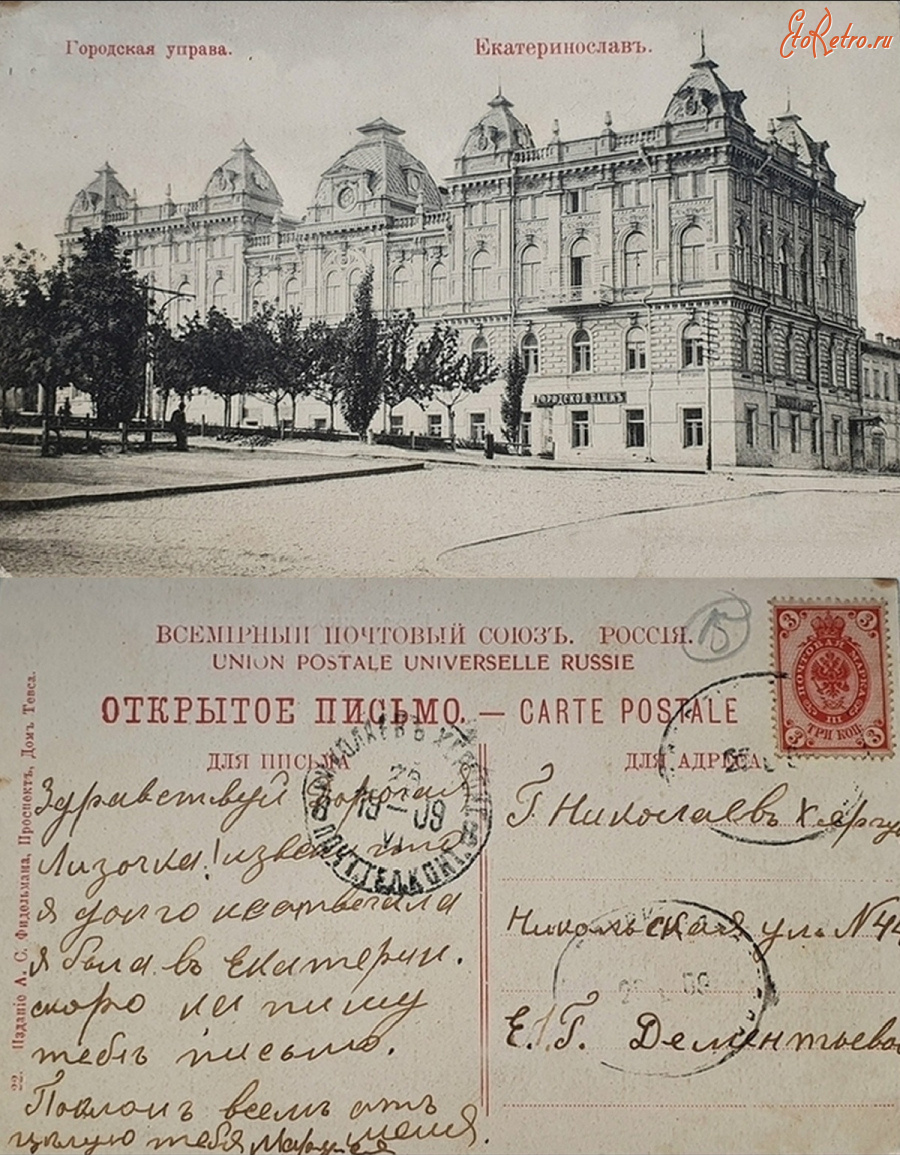 Городская управа.
Екатеринославъ.
EtoRetro.ru
ГОРОДСКОЙ БАНКЪ
ВСЕМІРНЫЙ ПОЧТОВЫЙ СОЮЗЪ. РОССІЯ.
UNION POSTALE UNIVERSELLE RUSSIE
ОТКРЫТОЕ ПИСЬМО. — CARTE POSTALE
ДЛЯ ПИСЬМА
ДЛЯ АДРЕСА
15
3 3
ПОЧТОВАЯ МАРКА
ТРИ КОП.
3 3
НИКОЛАЕВЪ ХЕРС
19 — 09
ПОЧТ.ТЕЛ.КОНТ.
Здравствуй дорогая
Лизочка! извени что
я долго не отвечала
я была въ Екатерин.
скоро на пишу
тебѣ письмо.
Поклонъ всемъ отъ
меня.
цѣлую тебя Маруся
Г. Николаевъ Хер
Никольская ул. N 44
Е. Г. Дементьево
22. Изданіе А. С. Фидельмана, Проспектъ, Домъ Тевса.